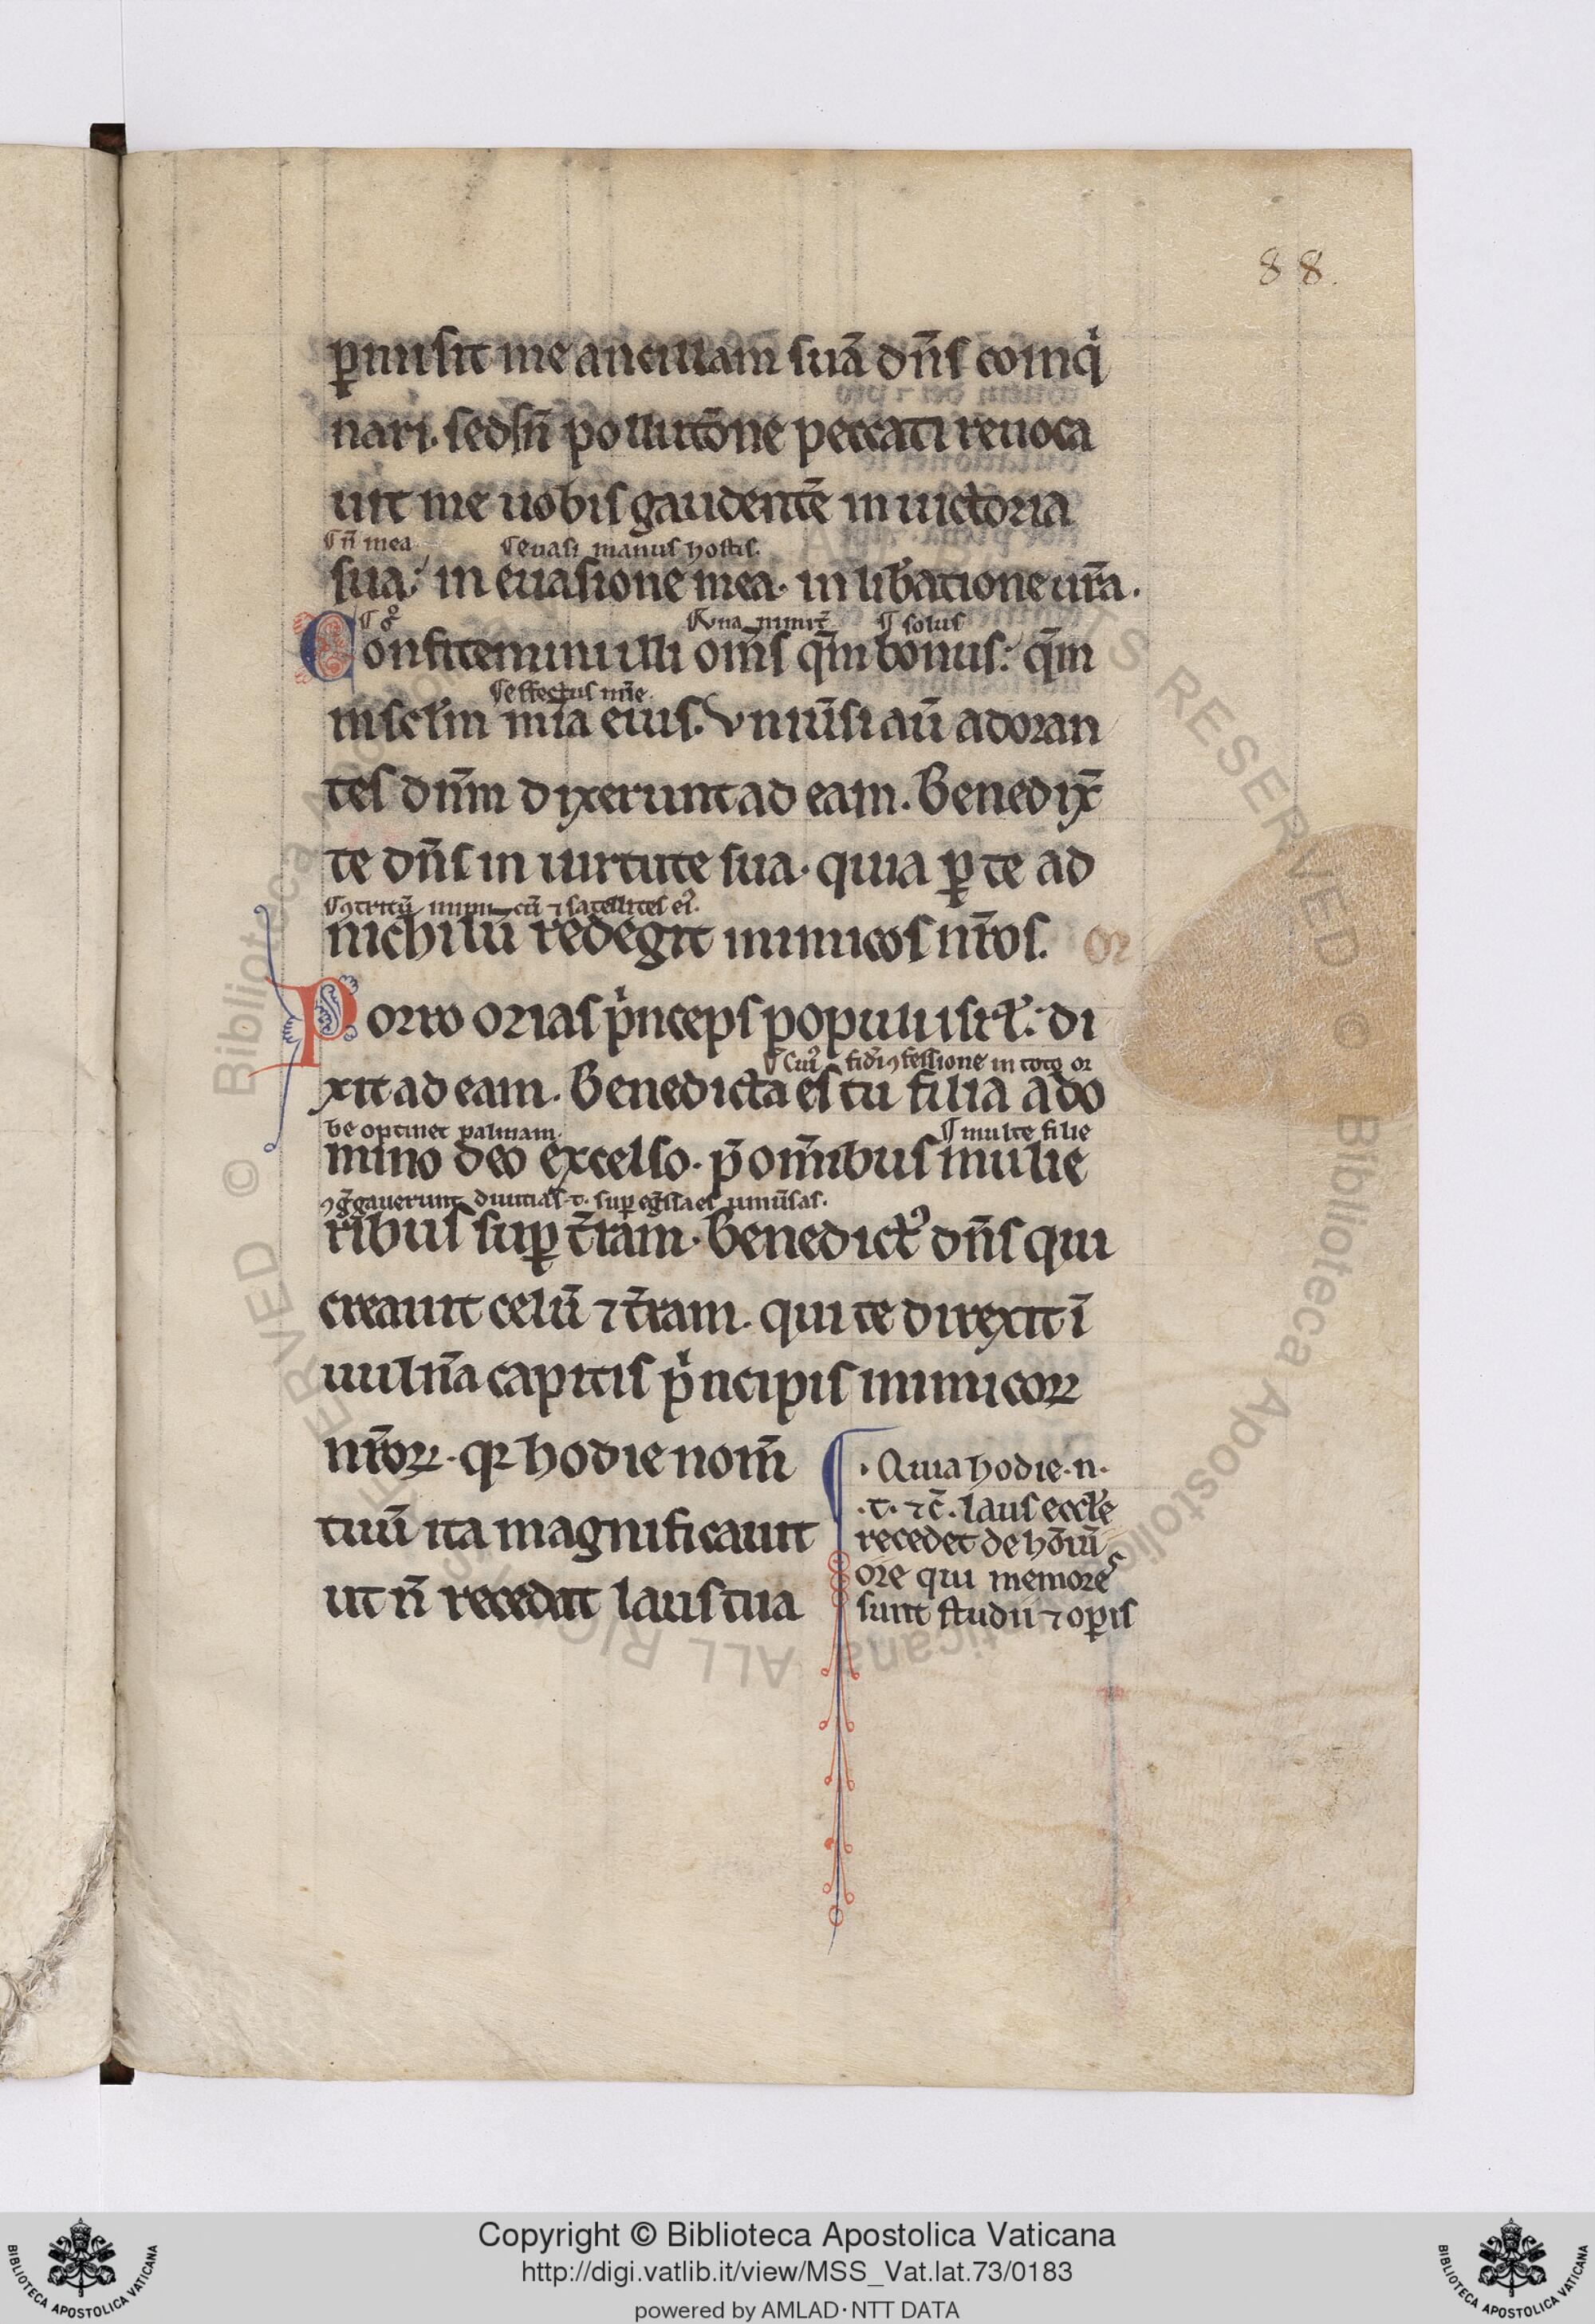 88.
ꝑmisit me ancillam suā dn̄s coinqͥ
nari. sed sn̄ pollutōne peccati reuoca
uit me uobis gaudentē in uictoria
¶ n̄ mea ¶ euasi manus hostis.
sua: in euasione mea. in lib̄atione ur̄a.
¶ solus
Confitemini illi om̄s qm̄ bonus: qm̄
¶ effectus mīe.
in sclm̄ mīa eius. Vniūsi aū adoran
tes dnm̄ dixerunt ad eam. Benedix̄
te dn̄s in uirtute sua. quia ꝑ te ad
nichilū redegit inimicos nr̄os.
Porro ozias pͥnceps populi isrl̄: di
fessione in toto or
xit ad eam. Benedicta es tu filia a do
be optinet palmam. ¶ multe filie
mino deo excelso. p̄ om̄ibus mulie
ꝯḡgauerunt diuitias .t. suꝑ eḡssa es uniūsas.
ribus suꝑ t̄ram. Benedictꝰ dn̄s qui
creauit celū ⁊ t̄ram. qui te direxit ī
uuln̄a capitis pͥncipis inimicoꝝ
nr̄oꝝ. qꝛ hodie nom̄
tuū ita magnificauit
ut n̄ recedat laus tua
. Quia hodie .n.
.t. ⁊c̄. laus eccl̄e
recedet de hōiū
ore qui memores
sunt studii ⁊ oꝑis
Copyright © Biblioteca Apostolica Vaticana
http://digi.vatlib.it/view/MSS_Vat.lat.73/0183
powered by AMLAD·NTT DATA
BIBLIOTECA APOSTOLICA VATICANA
BIBLIOTECA APOSTOLICA VATICANA